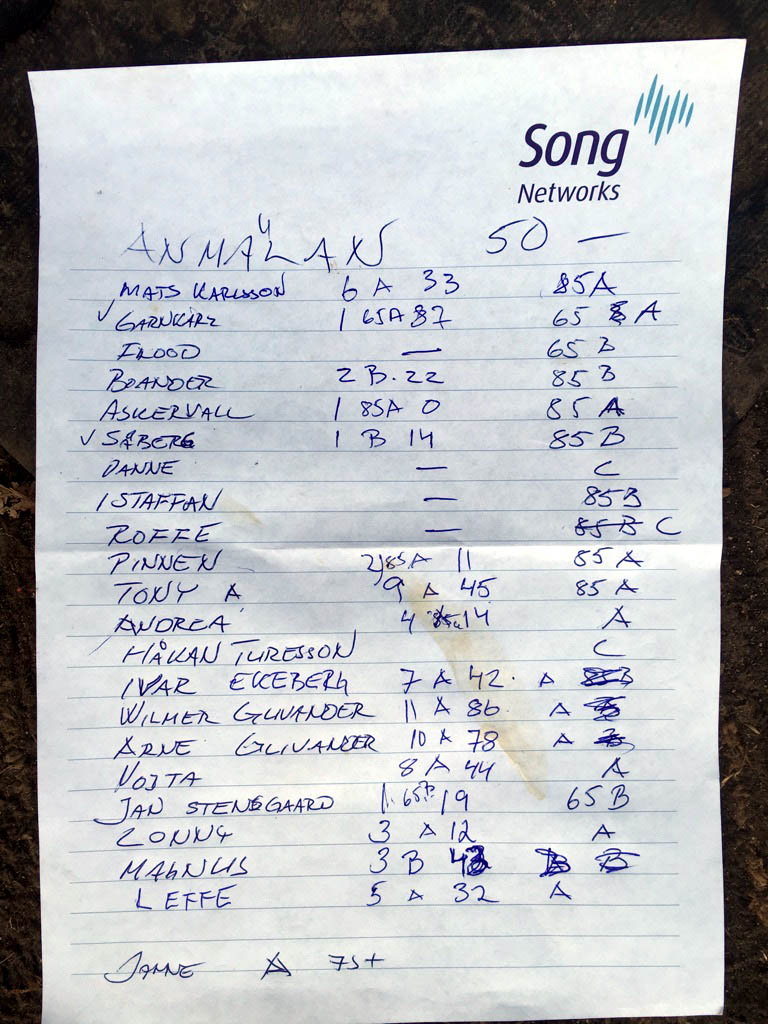 Song
Networks
ANMÄLAN 50 —
MATS KARLSSON 6 A 33 85A
✓ GARNKÄRZ 1 65A 87 65 A
FLOOD — 65 B
BOANDER 2 B. 22 85 B
ASKERVALL 1 85A 0 85 A
✓ SÅBERG 1 B 14 85B
DANNE — C
STAFFAN — 85B
ROFFE — 85 B C
PINNEN 2 85 A 11 85 A
TONY A 9 A 45 85 A
ANDREA 4 14 A
HÅKAN TURESSON C
IVAR EKEBERG 7 A 42. A
WILMER GLIVANDER 11 A 86 A
ARNE GLIVANDER 10 A 78 A
VOJTA 8 A 44 A
JAN STENSGAARD 1 65B 19 65 B
CONNY 3 A 12 A
MAGNUS 3 B
LEFFE 5 A 32 A
JANNE A 75+